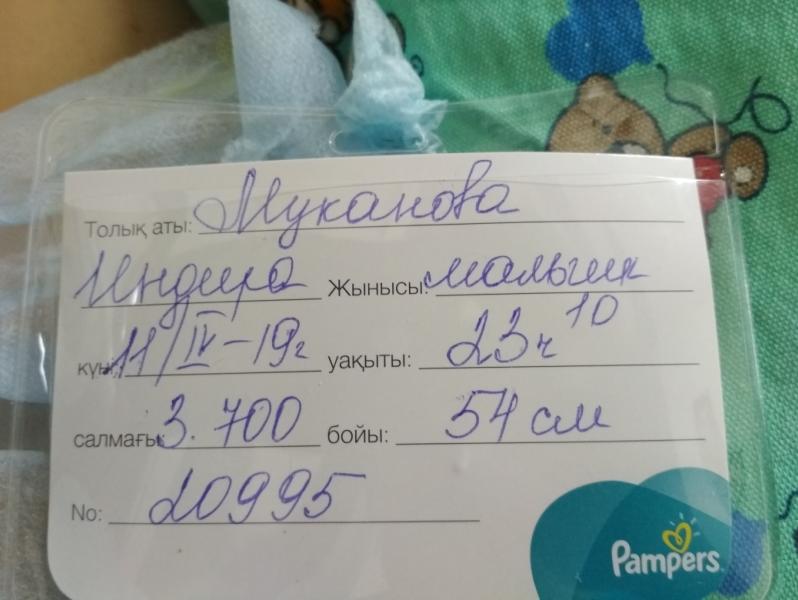 Толық аты: Муканова
Индира Жынысы: мальчик
күні 11/IV-19г уақыты: 23ч 10
салмағы: 3.700 бойы: 54 см
No: 20995
Pampers